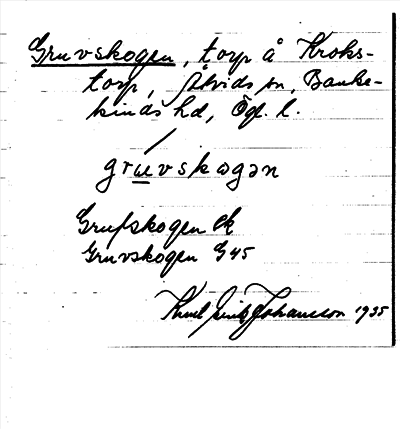 Gruvskogen, torp å Kroks-
torp, Åtvids sn, Banke-
kinds hd, Ög. l.
gruvskogən
Grufskogen Ek
Gruvskogen G45
Knut Erik Johansson 1935